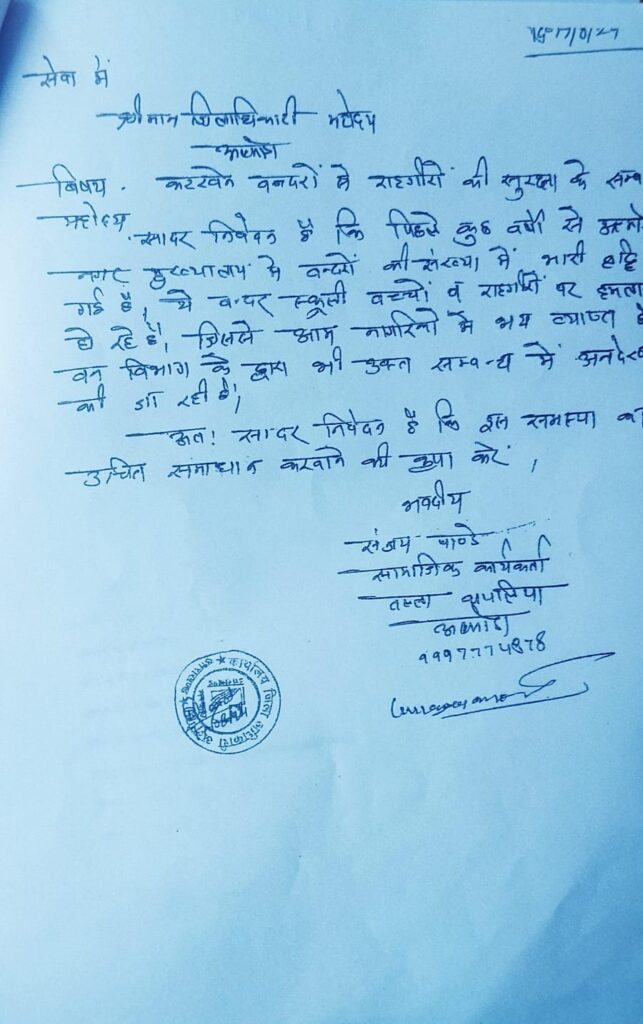 सेवा में
श्रीमान जिलाधिकारी महोदय
अल्मोड़ा
विषय . कटखने बन्दरों से राहगीरों की सुरक्षा के सम्ब
महोदय
सादर निवेदन है कि पिछले कुछ वर्षों से
नगर मुख्यालय में बन्दरों की संख्या में भारी वृद्धि
गई है, ये बन्दर स्कूली बच्चों व राहगीरों पर हमला
हो रहे है, जिससे आम नागरिकों में भय व्याप्त है
वन विभाग के द्वारा भी उक्त सम्बन्ध में अनदेख
की जा रही है,
अतः सादर निवेदन है कि इस समस्या का
उचित समाधान करवाने की कृपा करें ,
भवदीय
संजय पाण्डे
सामाजिक कार्यकर्ता
तल्ला
अल्मोड़ा
कार्यालय जिला अधिकारी